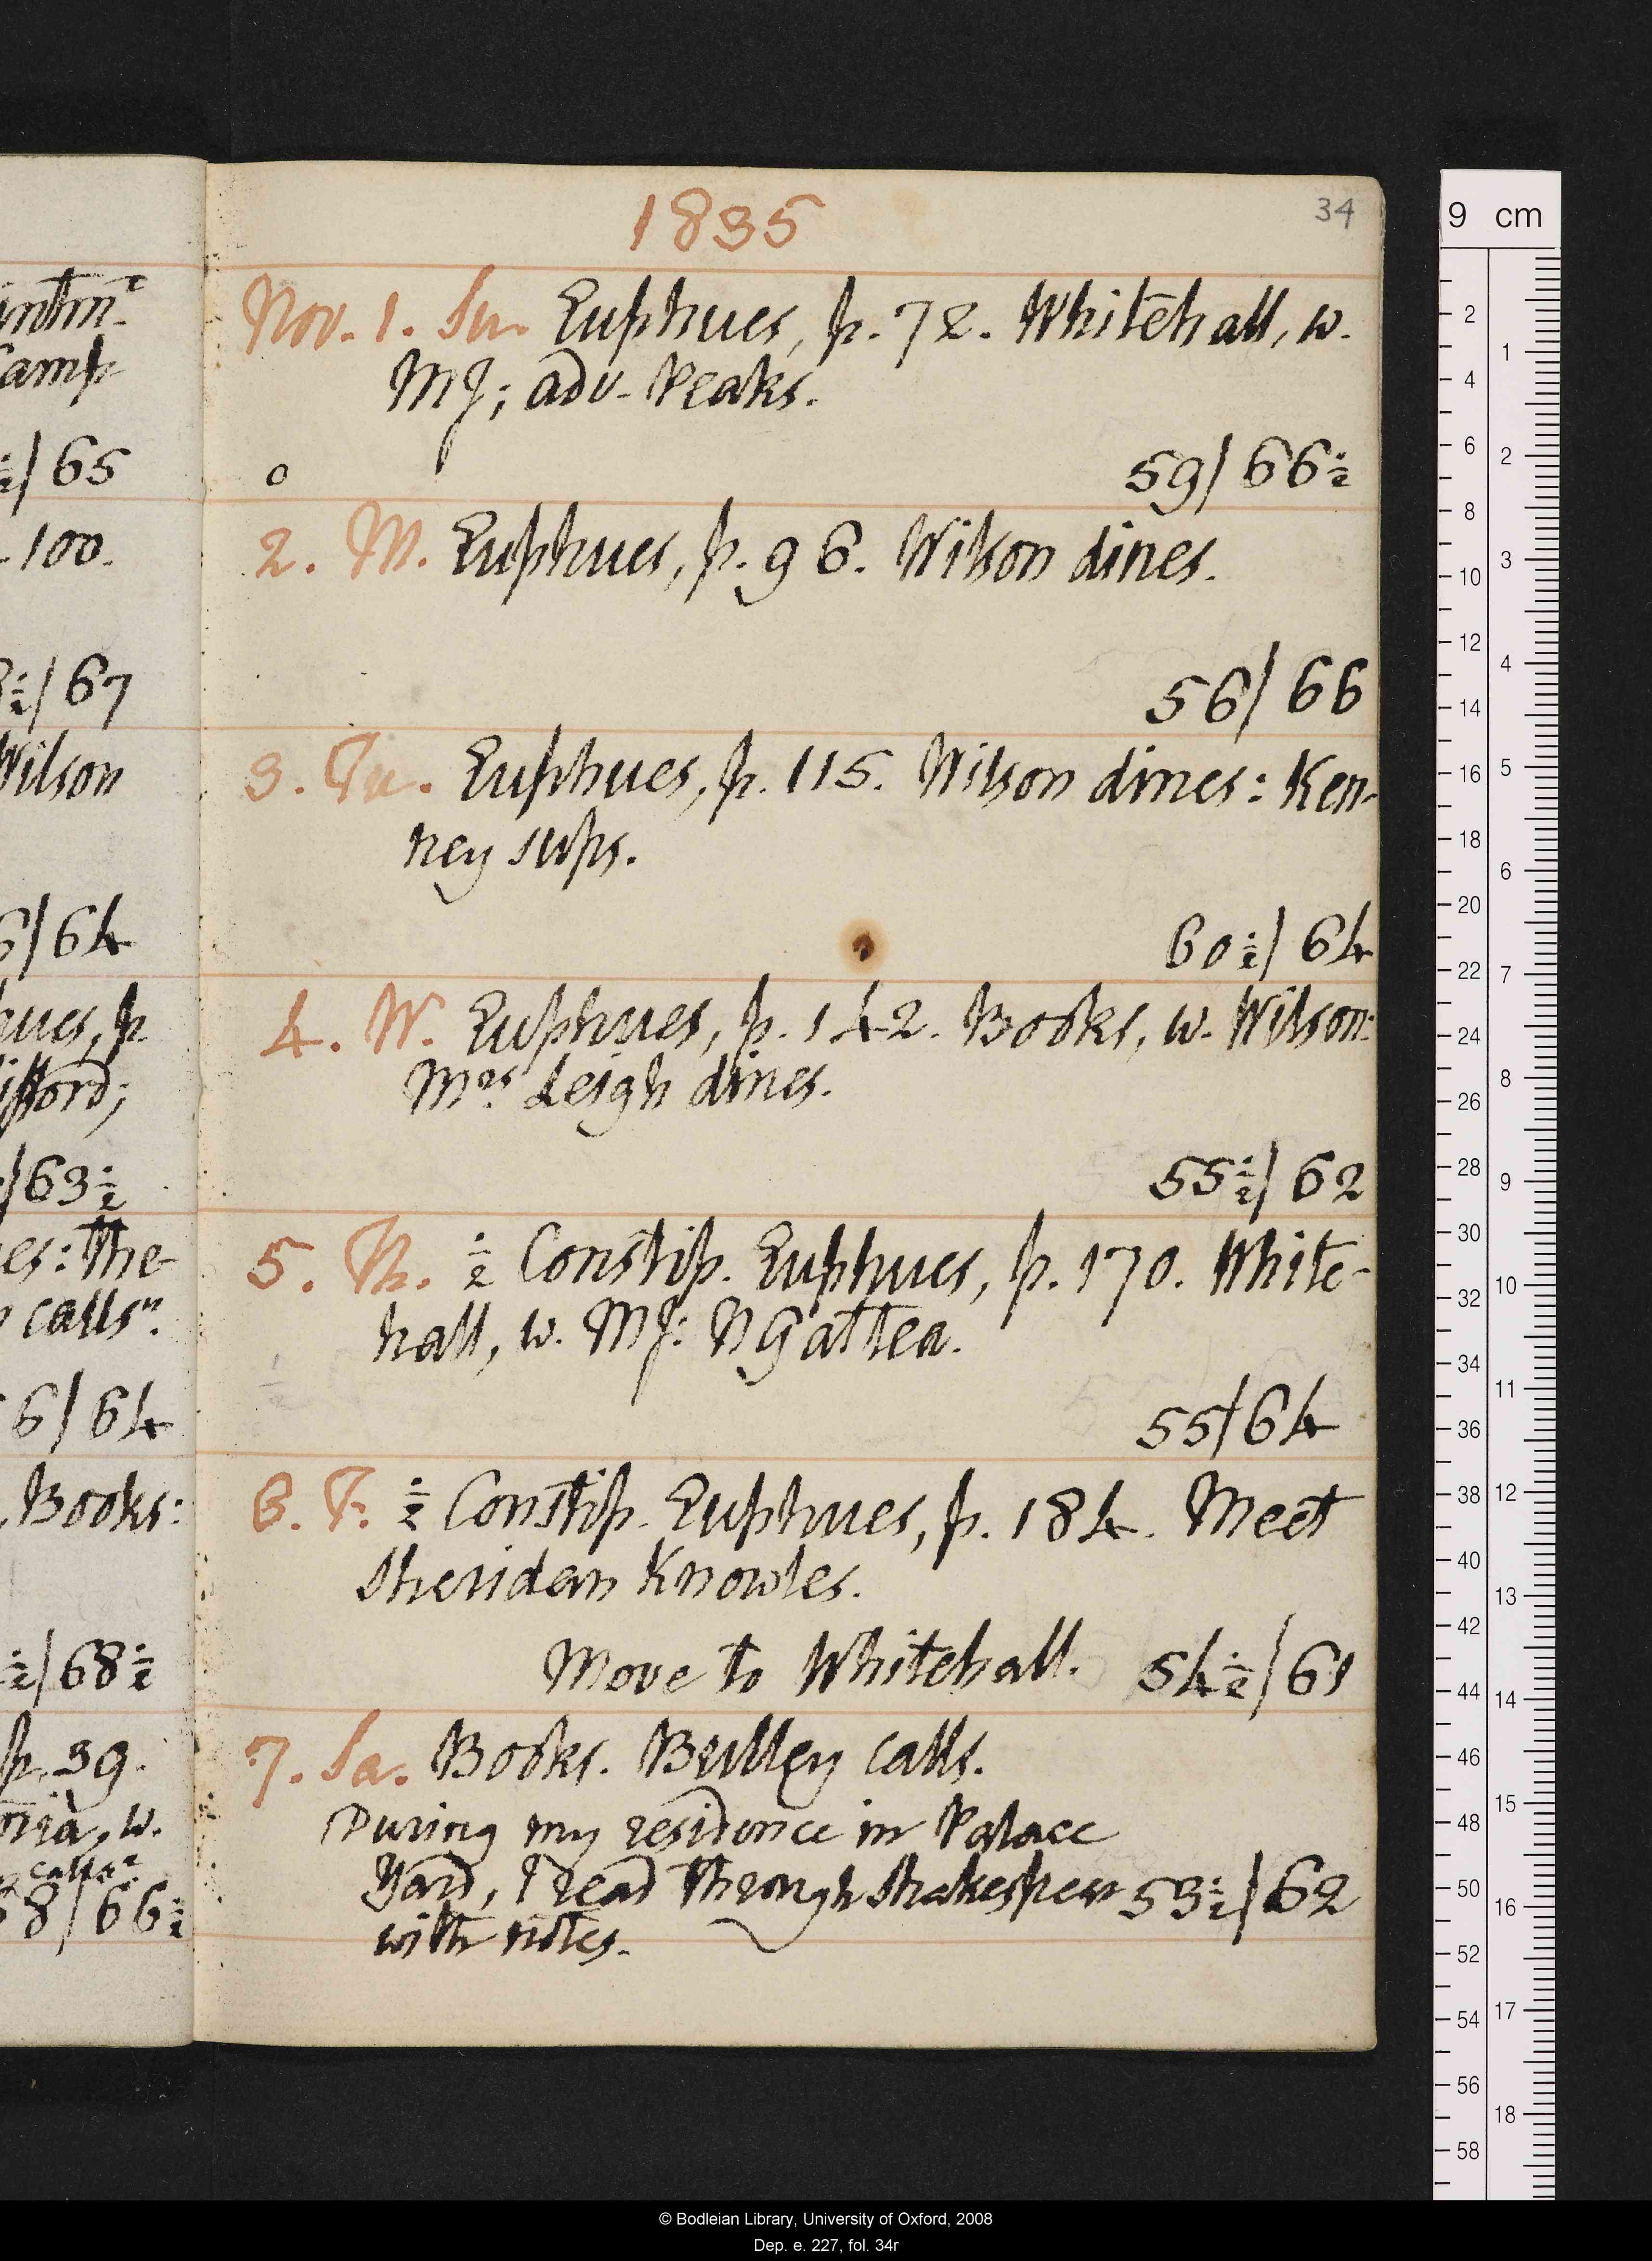 intmt.
Camp
½/65
100.
8½/67
Wilson
6/64
hues, p.
ifford;
/63½
es: The-
calls".
6/64
Books:
½/68½
p. 39.
oria, w.
calls
58/66½
1835
34
Nov. 1. Su. Euphues, p. 72. Whitehall, w.
MJ; adv. Peaks.
0
59/66½
2. M. Euphues, p. 96. Wilson dines.
56/66
3. Tu. Euphues, p. 115. Wilson dines: Ken-
ney sups.
60½/64
4. W. Euphues, p. 142. Books, w. Wilson:
Mrs Leigh dines.
55½/62
5. Th. ½ Constip. Euphues, p. 170. White-
hall, w. MJ: NG at tea.
55/64
6. F. ½ Constip. Euphues, p. 184. Meet
Sheridan Knowles.
Move to Whitehall. 54½/61
7. Sa. Books. Bulley calls.
During my residence in Palace
Yard, I read through Shakespear 53½/62
with notes.
9 cm
2 4 6 8 10 12 14 16 18 20 22 24 26 28 30 32 34 36 38 40 42 44 46 48 50 52 54 56 58
1 2 3 4 5 6 7 8 9 10 11 12 13 14 15 16 17 18
© Bodleian Library, University of Oxford, 2008
Dep. e. 227, fol. 34r